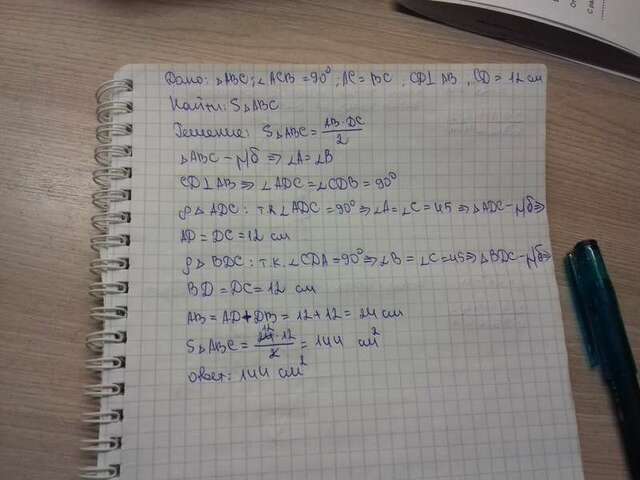 Дано: △ABC; ∠ACB = 90°; AC = BC, CD⊥AB, CD = 12 см
Найти: S△ABC
Решение: S△ABC = AB·DC/2
△ABC - р/б ⇒ ∠A = ∠B
CD⊥AB ⇒ ∠ADC = ∠CDB = 90°
Р △ADC: т.к ∠ADC = 90° ⇒ ∠A = ∠C = 45 ⇒ △ADC - р/б ⇒
AD = DC = 12 см
Р △BDC: т.к ∠CDA = 90° ⇒ ∠B = ∠C = 45 ⇒ △BDC - р/б ⇒
BD = DC = 12 см
AB = AD + DB = 12 + 12 = 24 см
S△ABC = 24·12/2 = 144 см²
ответ: 144 см²